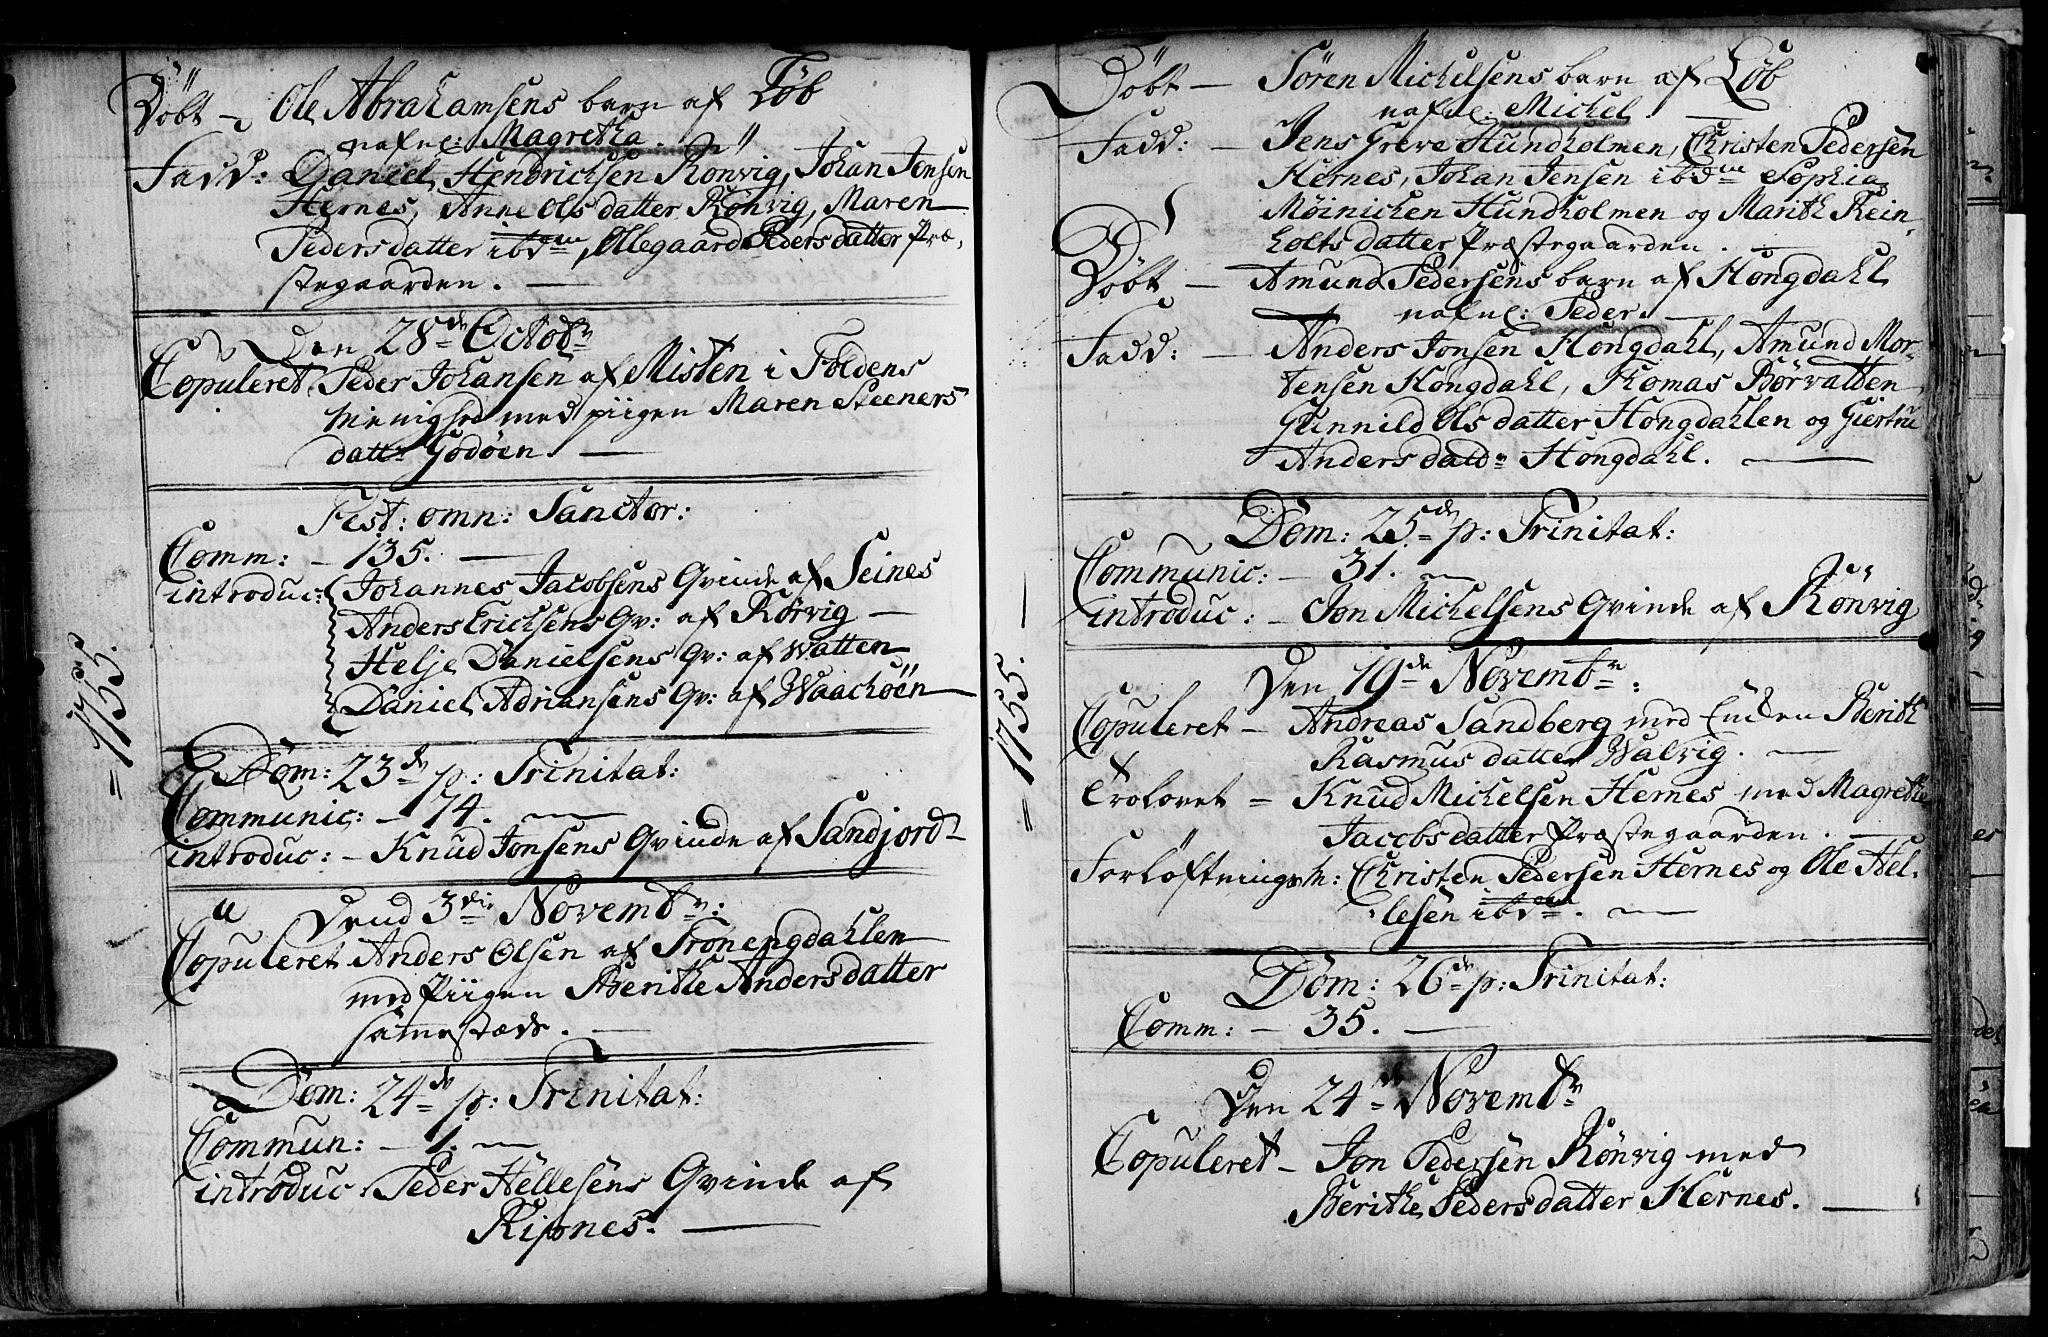 =1755.
Döbt - Ole Abrahamsens barn af Löb
nafnl: Magretha.
Fadd: Daniel Hendrichsen Rönvig, Johan Jensen
Hernes, Anne Olsdatter Rönvig, Maren
Pedersdatter ibdem, Ollegaard Pedersdatter Præ-
stegaarden. —
Den 28de Octobr
Copuleret Peder Johansen af Misten i Foldens
Menighed med piigen Maren Steeners
dattr Godöen. —
Fest: omn: Sanctor:
Comm: - 135. —
introduc: Johannes Jacobsens Qvinde af Seines
Anders Erichsens Qv: af Rörvig —
Helje Danielsens Qv: af Watten
Daniel Adriansens Qv: af Waachöen
Dom: 23de p: Trinitat:
Communic: - 74. —
introduc: - Knud Jonsens Qvinde af Sandjord -
Dend 3die Novembr:
Copuleret Anders Olsen af Tronengdahlen
med Piigen Berithe Andersdatter
samestæds. —
Dom: 24de p: Trinitat:
Commun: - 1. —
introduc: Peder Hellesens Qvinde af
Ripnes. —
=1755. —
Döbt - Sören Michelsens barn af Löb
nafnl: Michel
Fadd: - Jens Greve Hundholmen, Christen Pedersen
Hernes, Johan Jensen ibdem Sophia
Möinichen Hundholmen og Marith Rein-
holtsdatter Præstegaarden. —
Döbt - Amund Pedersens barn af Hongdahl
nafnl: Peder. —
Fadd: - Anders Jonsen Hongdahl, Amund Mor-
tensen Hongdahl, Thomas Börvatten
Gunnild Olsdatter Hongdahlen og Giertru
Andersdattr Hongdahl. —
Dom: 25de p: Trinitat:
Communic: - 31. —
introduc: - Jon Michelsens Qvinde af Rönvig
Den 19de Novembr:
Copuleret - Andreas Sandberg med Enken Berith
Rasmusdatter Walvig. —
Trolovet = Knud Michelsen Hernes med Magrethe
Jacobsdatter Præstegaarden. —
Forlöftningsm: Christen Pedersen Hernes og Ole Hel-
lesen ibdem. —
Dom: 26de p: Trinitat:
Comm: - 35. —
Den 24de Novembr
Copuleret - Jon Pedersen Rönvig med
Berithe Pedersdatter Hernes. —